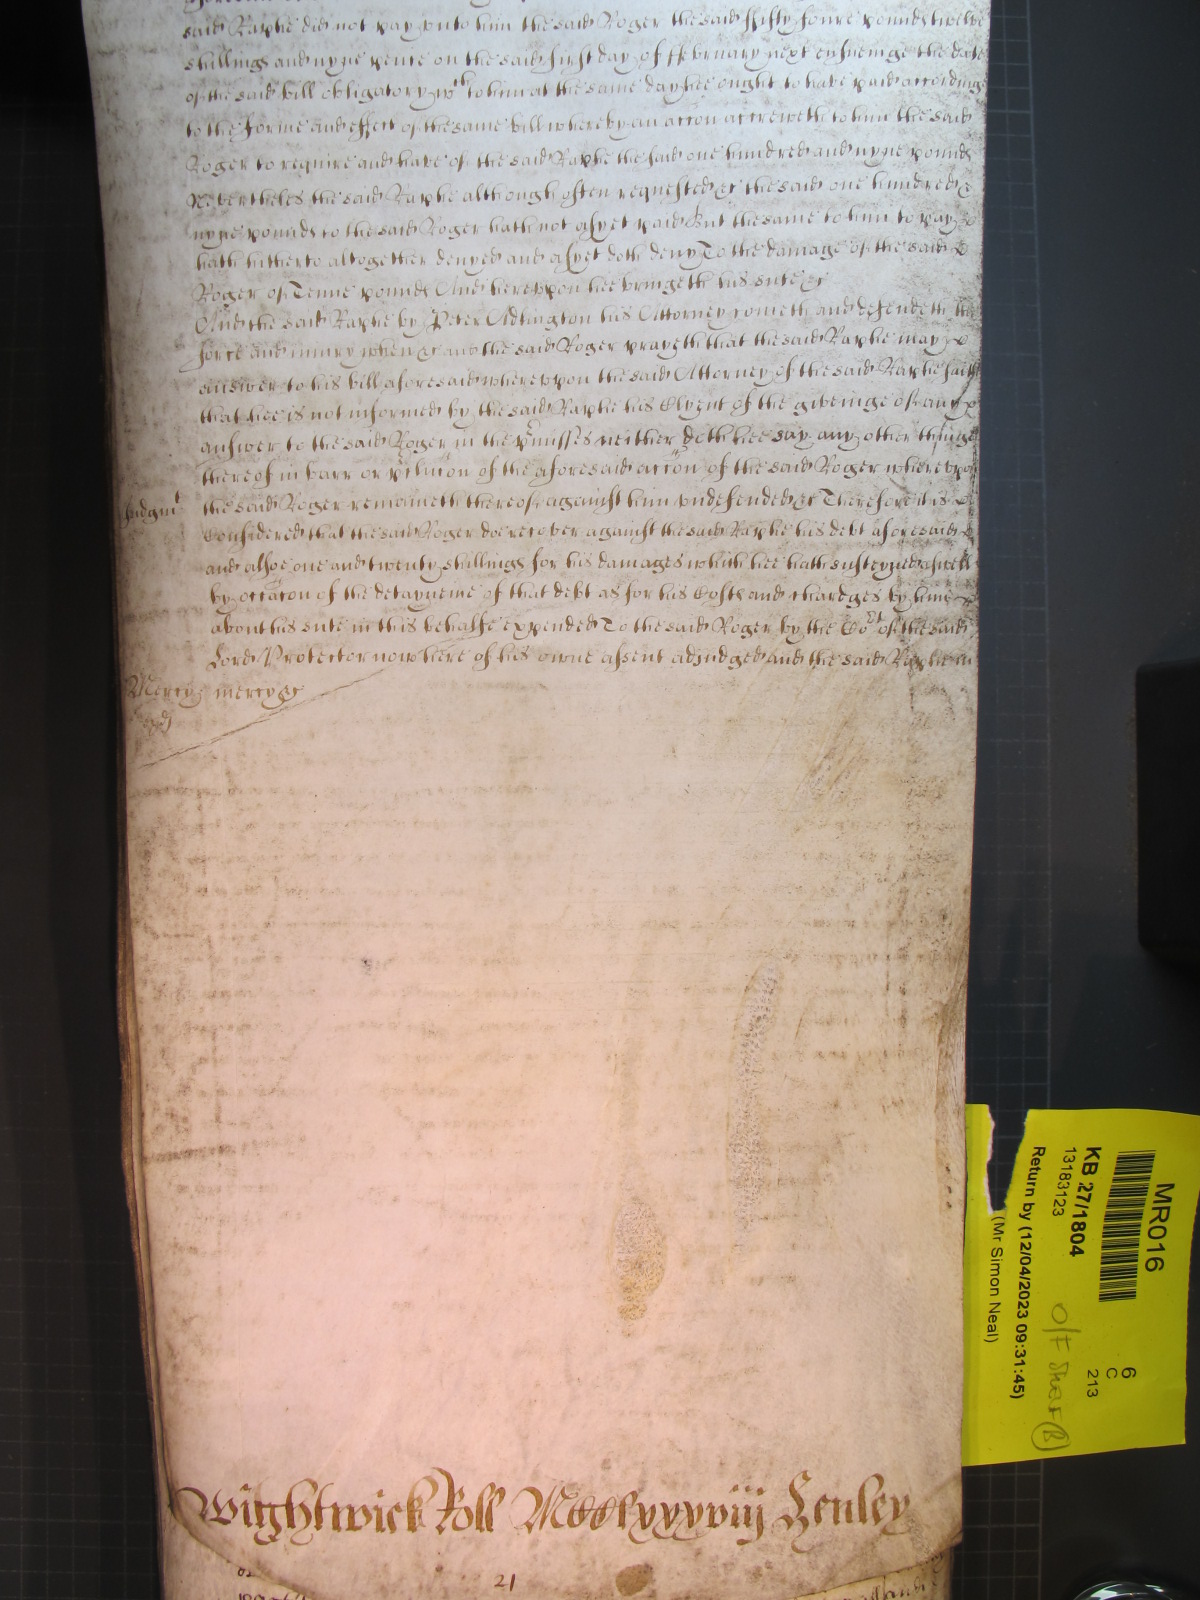 said Raphe did not pay unto him the said Roger the said ffifty foure pounds twelve
shillings and nyne pence on the said first day of ffebruary next ensueinge the date
of the said bill obligatory wch to him at the same day hee ought to have paid accordinge
to the forme and effect of the same bill whereby an accon accreweth to him the said
Roger to require and have of the said Raphe the said one hundred and nyne pounds
Nevertheles the said Raphe although often requested &c the said one hundred &
nyne pounds to the said Roger hath not as yet paid But the same to him to pay
hath hitherto altogether denyed and as yet doth deny To the damage of the said
Roger of Tenne pounds And hereupon hee bringeth his sute &c
And the said Raphe by Peter Adlington his Attorney cometh and defendeth the
force and iniury when &c and the said Roger prayeth that the said Raphe may
answer to his bill aforesaid whereupon the said Attorney of the said Raphe saith
that hee is not informed by the said Raphe his Clyent of the giveinge of any
answer to the said Roger in the pmisses neither doth hee say any other thinge
thereof in barr or pclusion of the aforesaid accon of the said Roger whereupon
Judgmt the said Roger remaineth thereof against him undefended &c Therefore it is
Considered that the said Roger doe recover against the said Raphe his debt aforesaid
and alsoe one and twenty shillings for his damages which hee hath susteyned aswell
by occacon of the detayneing of that debt as for his Costs and chardges by him
about his sute in this behalfe expended To the said Roger by the Cort of the said
Lord Protector now here of his owne assent adjudged and the said Raphe in
Mercy mercy &c
Wightwick Roll MCCClxxxxviij Henley
21
MR016
KB 27/1804
13183123
Return by (12/04/2023 09:31:45)
(Mr Simon Neal)
6
C
213
O/F